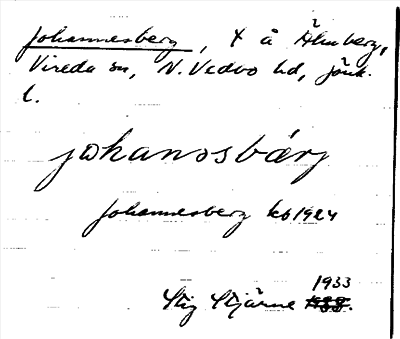 Johannesberg, × å Älmberg,
Vireda sn, N. Vedbo hd, Jönk.
l.
johanəsbärj
Johannesberg kb 1924
1933
Stig Stjärne